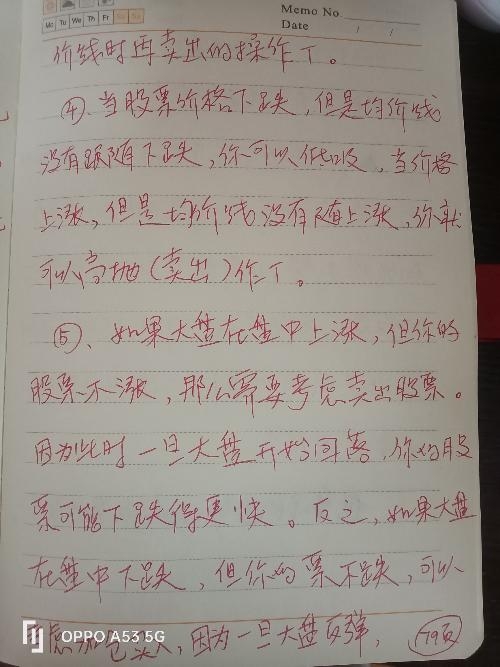 Memo No.
Mo Tu We Th Fr Sa Su
Date / /
价线时再卖出的操作T。
④、当股票价格下跌，但是均价线
没有跟随下跌，你可以低吸，当价格
上涨，但是均价线没有随上涨，你就
可以高抛（卖出）作T。
⑤、如果大盘在盘中上涨，但你的
股票不涨，那么需要考虑卖出股票。
因为此时一旦大盘开始回落，你的股
票可能下跌得更快。反之，如果大盘
在盘中下跌，但你的票不跌，可以
虑加仓买入，因为一旦大盘反弹，
79页
OPPO A53 5G